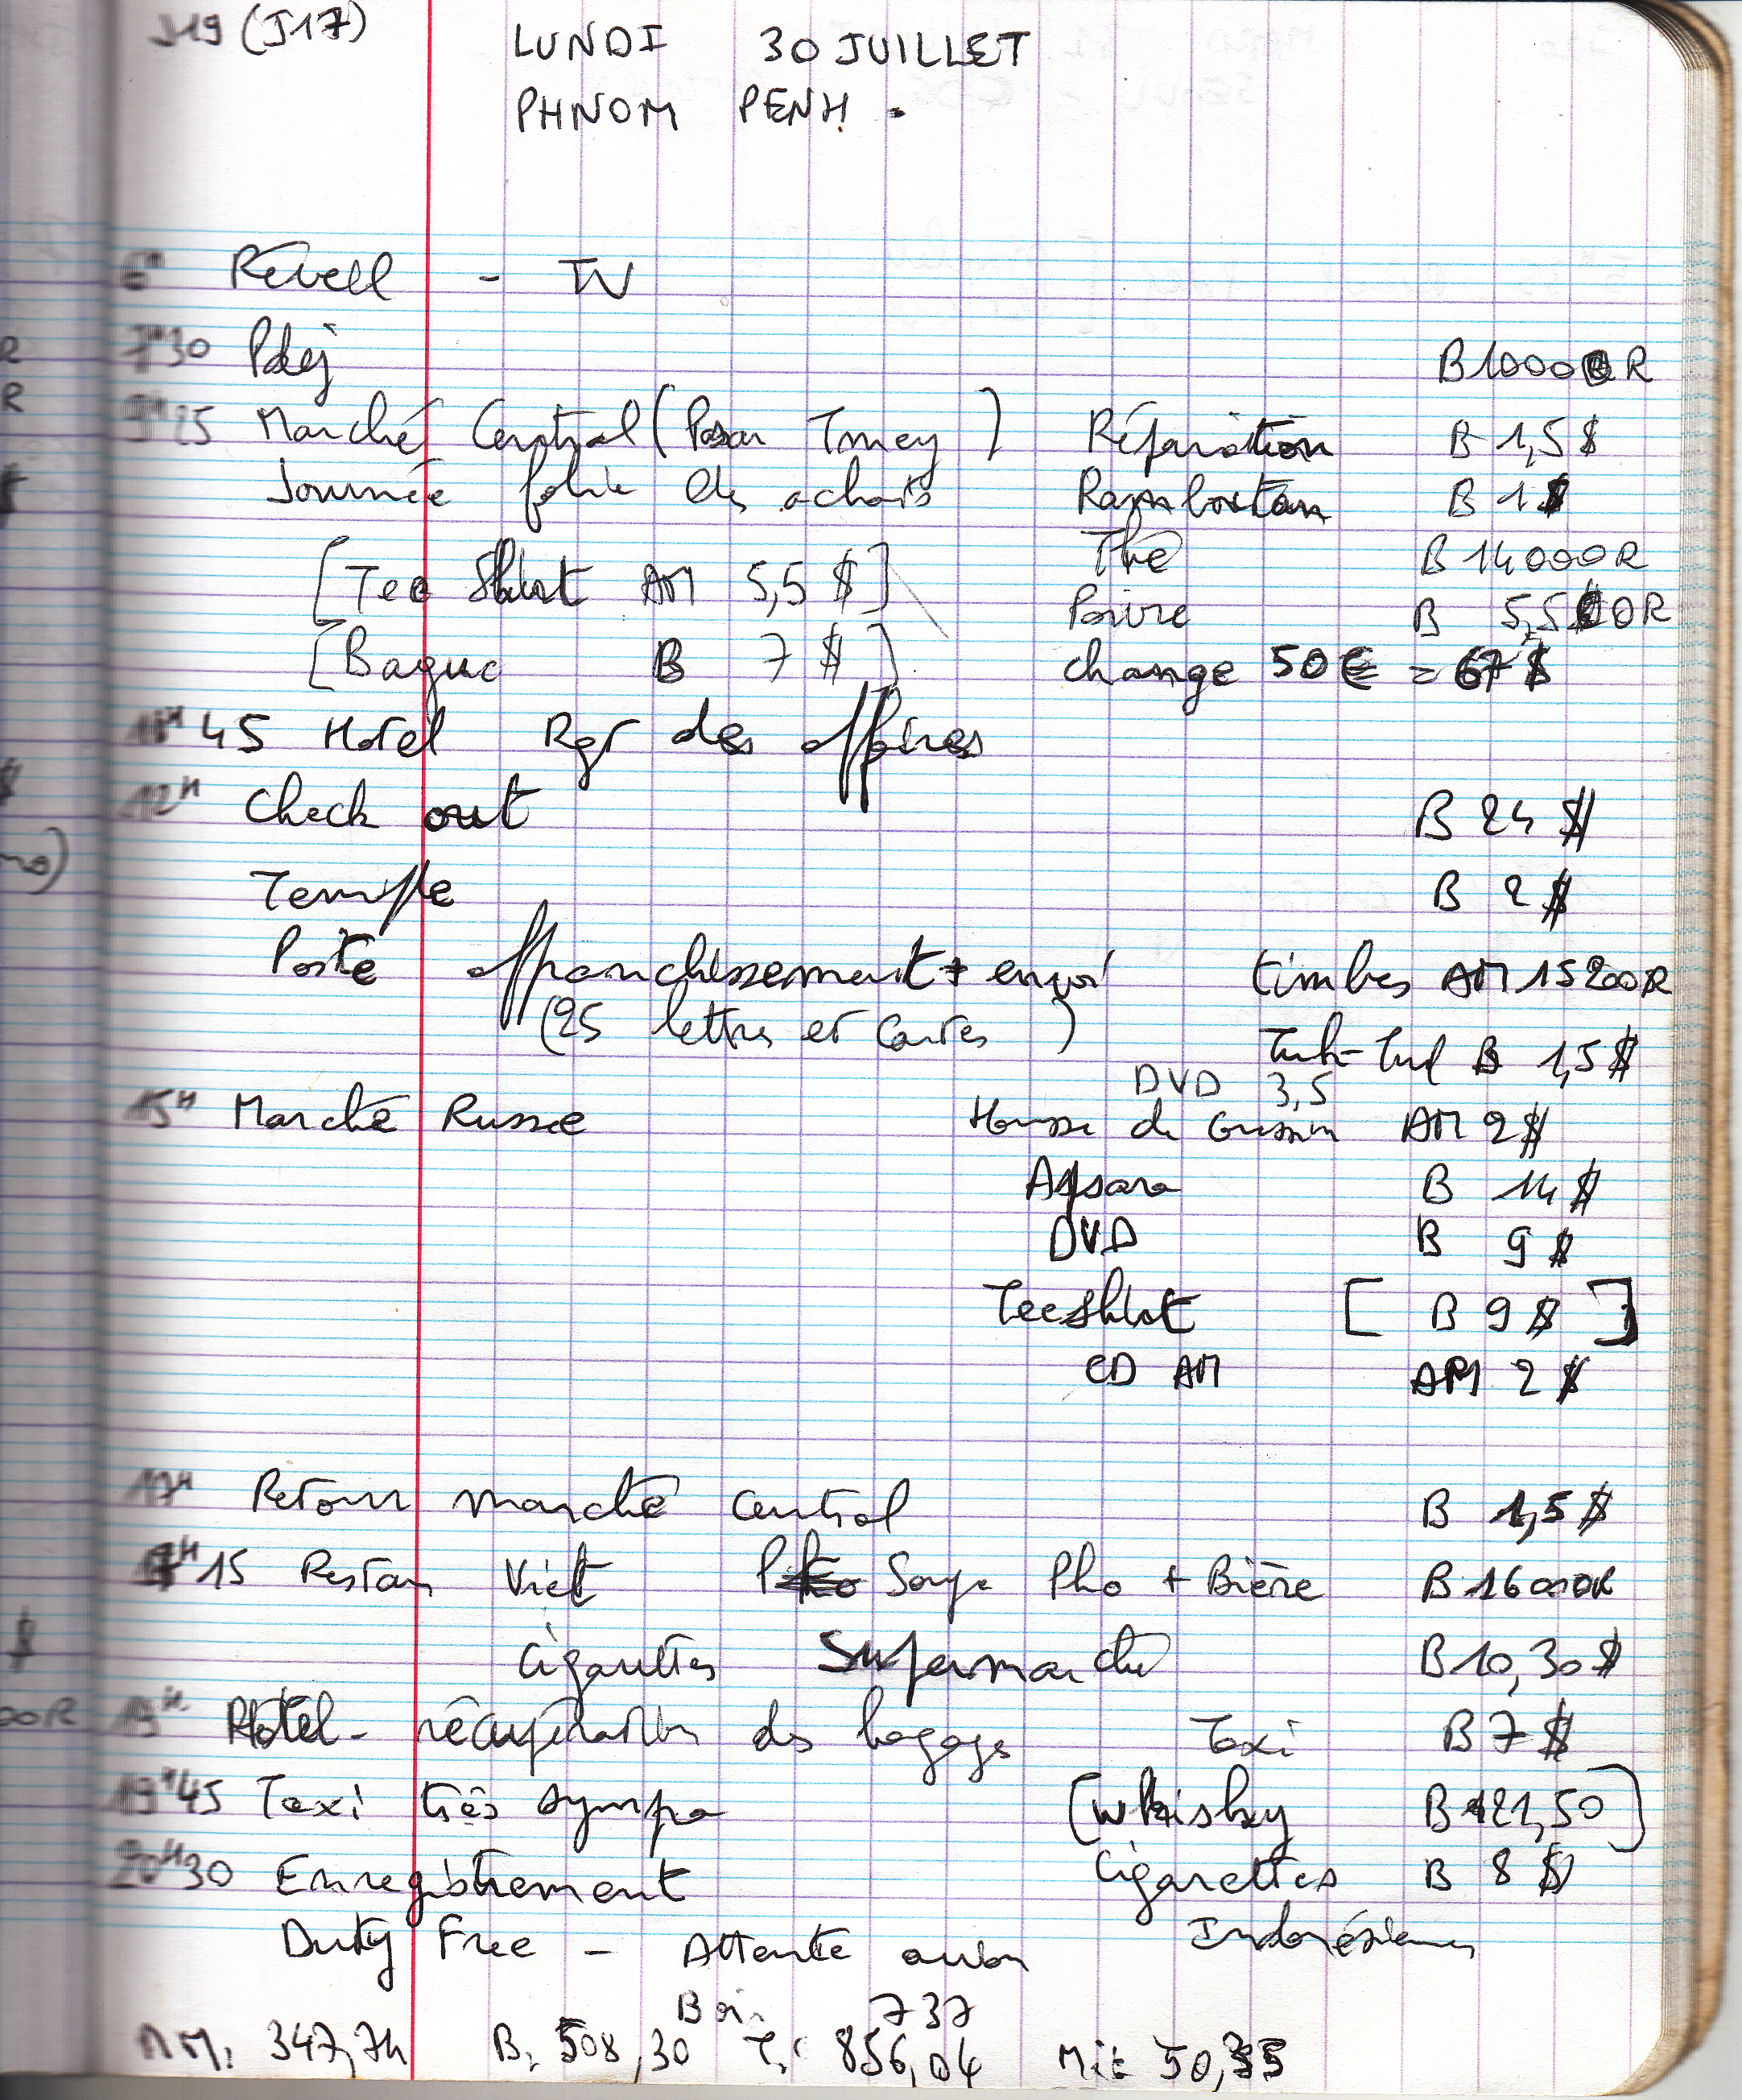 J19 (J17) LUNDI 30 JUILLET
PHNOM PENH.
6H Réveil - TV
7H30 Pdej B 10000 R
9H25 Marché Central ( Tmey ) Réparation B 1,5 $
Journée folie des achats Ramboutan B 1 $
[Tee Shirt AM 5,5 $] Thé B 14000R
Poivre B
[Bague B 7 $] change 50€ = 67 $
11H45 Hotel Rgt des affaires
12H Check out B 24 $
Temple B 2 $
Poste affranchissement + envoi timbres AM 15200R
(25 lettres et cartes ) Tuk-Tuk B 1,5 $
DVD 3,5
15H Marché Russe Housse de Coussin AM 2$
Apsara B 14 $
DVD B 9 $
Teeshirt [ B 9 $ ]
CD AM AM 2 $
17H Retour marché central B 1,5 $
17H15 Restau Viet Soupe Pho + Bière B 16000R
Cigarettes Supermarché B 10,30 $
19H Hôtel - récupération des bagages Taxi B 7 $
19H45 Taxi très sympa [Whisky B 21,50]
20H30 Enregistrement Cigarettes B 8 $
Duty Free - Attente avion Indonésiennes
737
AM: 347,74 B: 508,30 T: 856,04 50,35